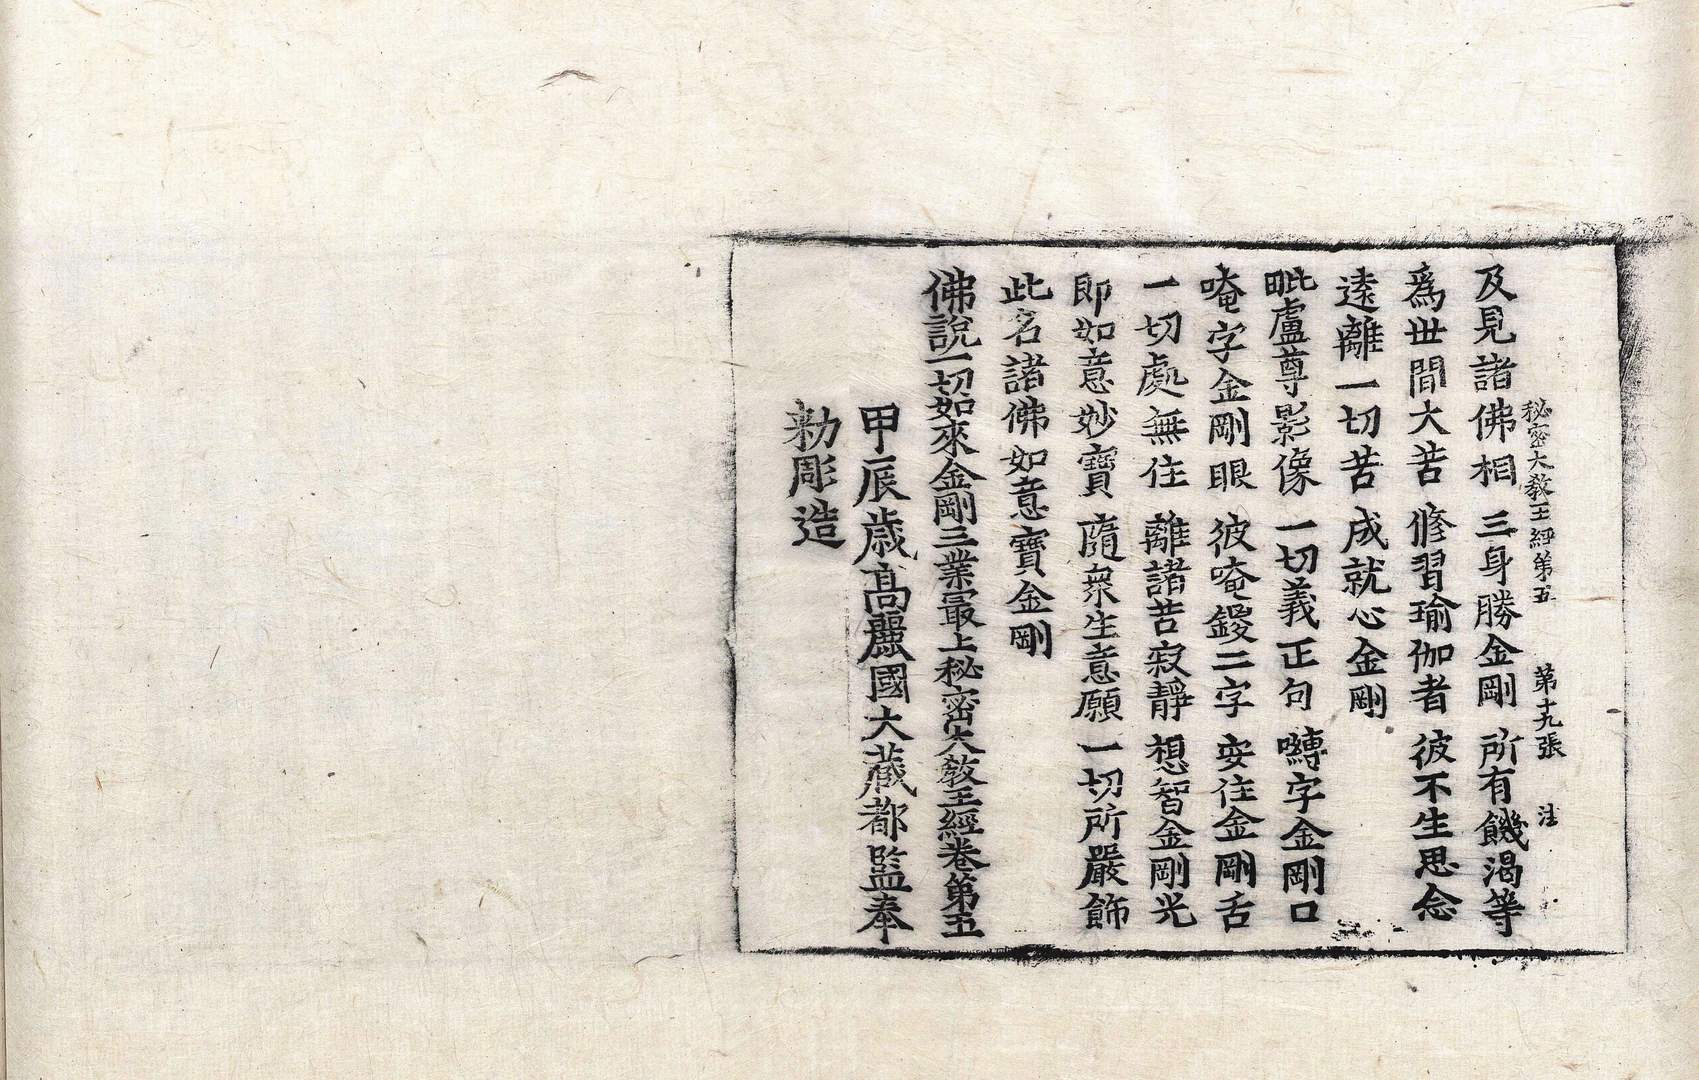 秘密大敎王經第五　第十九張　注
及見諸佛相　三身勝金剛　所有饑渴等
爲世間大苦　修習瑜伽者　彼不生思念
遠離一切苦　成就心金剛
毗盧尊影像　一切義正句　嚩字金剛口
唵字金剛眼　彼唵鑁二字　安住金剛舌
一切處無住　離諸苦寂靜　想智金剛光
即如意妙寶　隨衆生意願　一切所嚴飾
此名諸佛如意寶金剛
佛說一切如來金剛三業最上秘密大敎王經卷第五
甲辰歲高麗國大藏都監奉
勅彫造